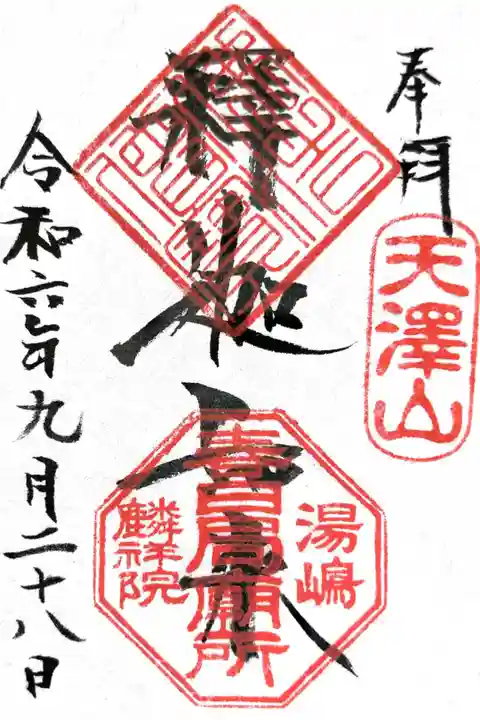 奉拝
天澤山
釋迦上
湯嶋
春日局廟所
麟祥院
令和六年九月二十八日